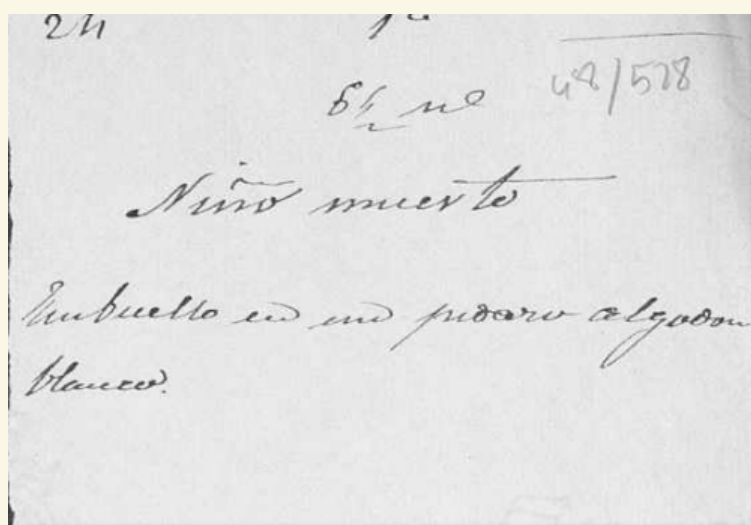 24
48/578
Niño muerto
Embuelto en un pedazo algodon
blanco.